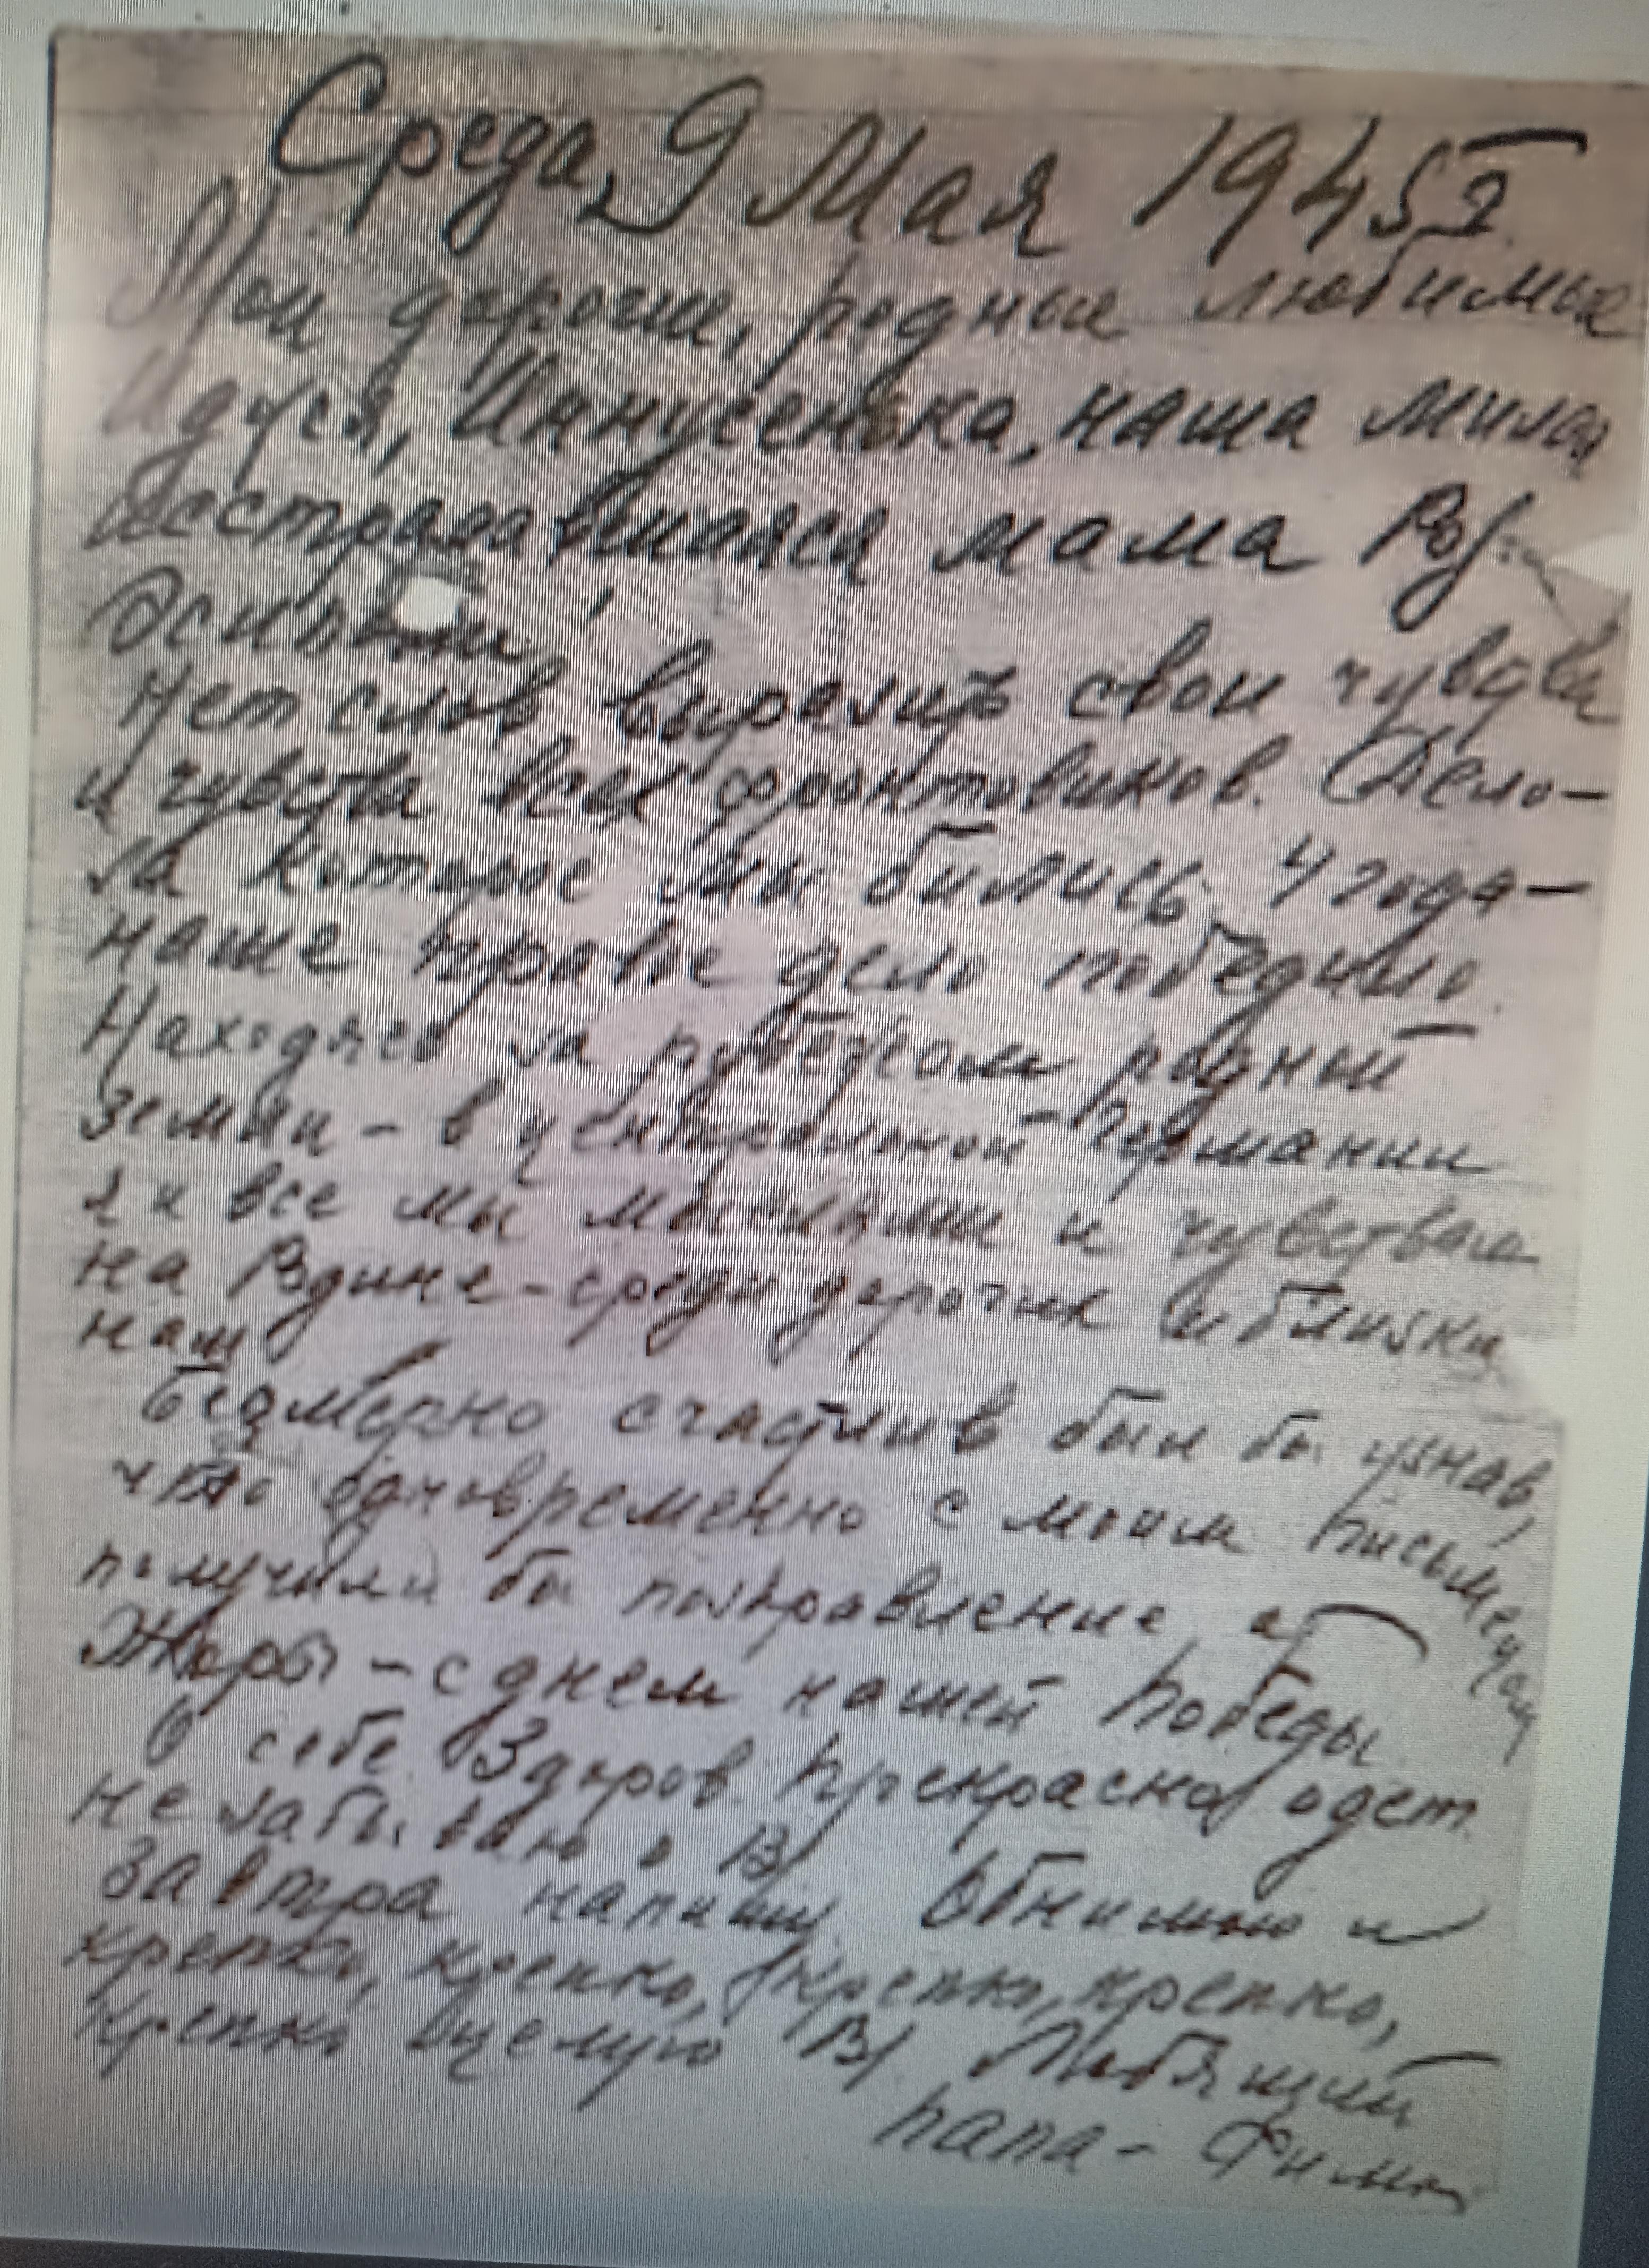 Среда, 9 Мая 1945 г.
Мои дорогие, родные любимые
Идуся, Иннусенька, наша милая
исстрадавшаяся мама
Осиповна!
Нет слов выразить свои чувства
и чувства всех фронтовиков. Дело —
за которое мы бились 4 года —
наше правое дело победило.
Находясь за рубежом родной
земли — в центральной Германии
я и все мы мыслями и чувствами
на Родине — среди дорогих и близких
нам
Безмерно счастлив был бы узнав,
что одновременно с моим письмецом
получили бы поздравление от
Жоры — с днем нашей победы
О себе. Здоров. Прекрасно одет
не забываю о В/
Завтра напишу. Обнимаю и
крепко, крепко, крепко, крепко,
крепко целую В/ Любящий
папа — Фима